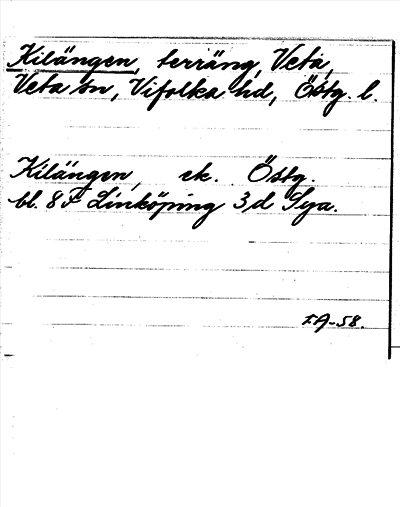 Kilängen, terräng, Veta,
Veta sn, Vifolka hd, Östg. l.
Kilängen, ek. Östg.
bl. 8 F Linköping 3,d Sya.
IA-58.